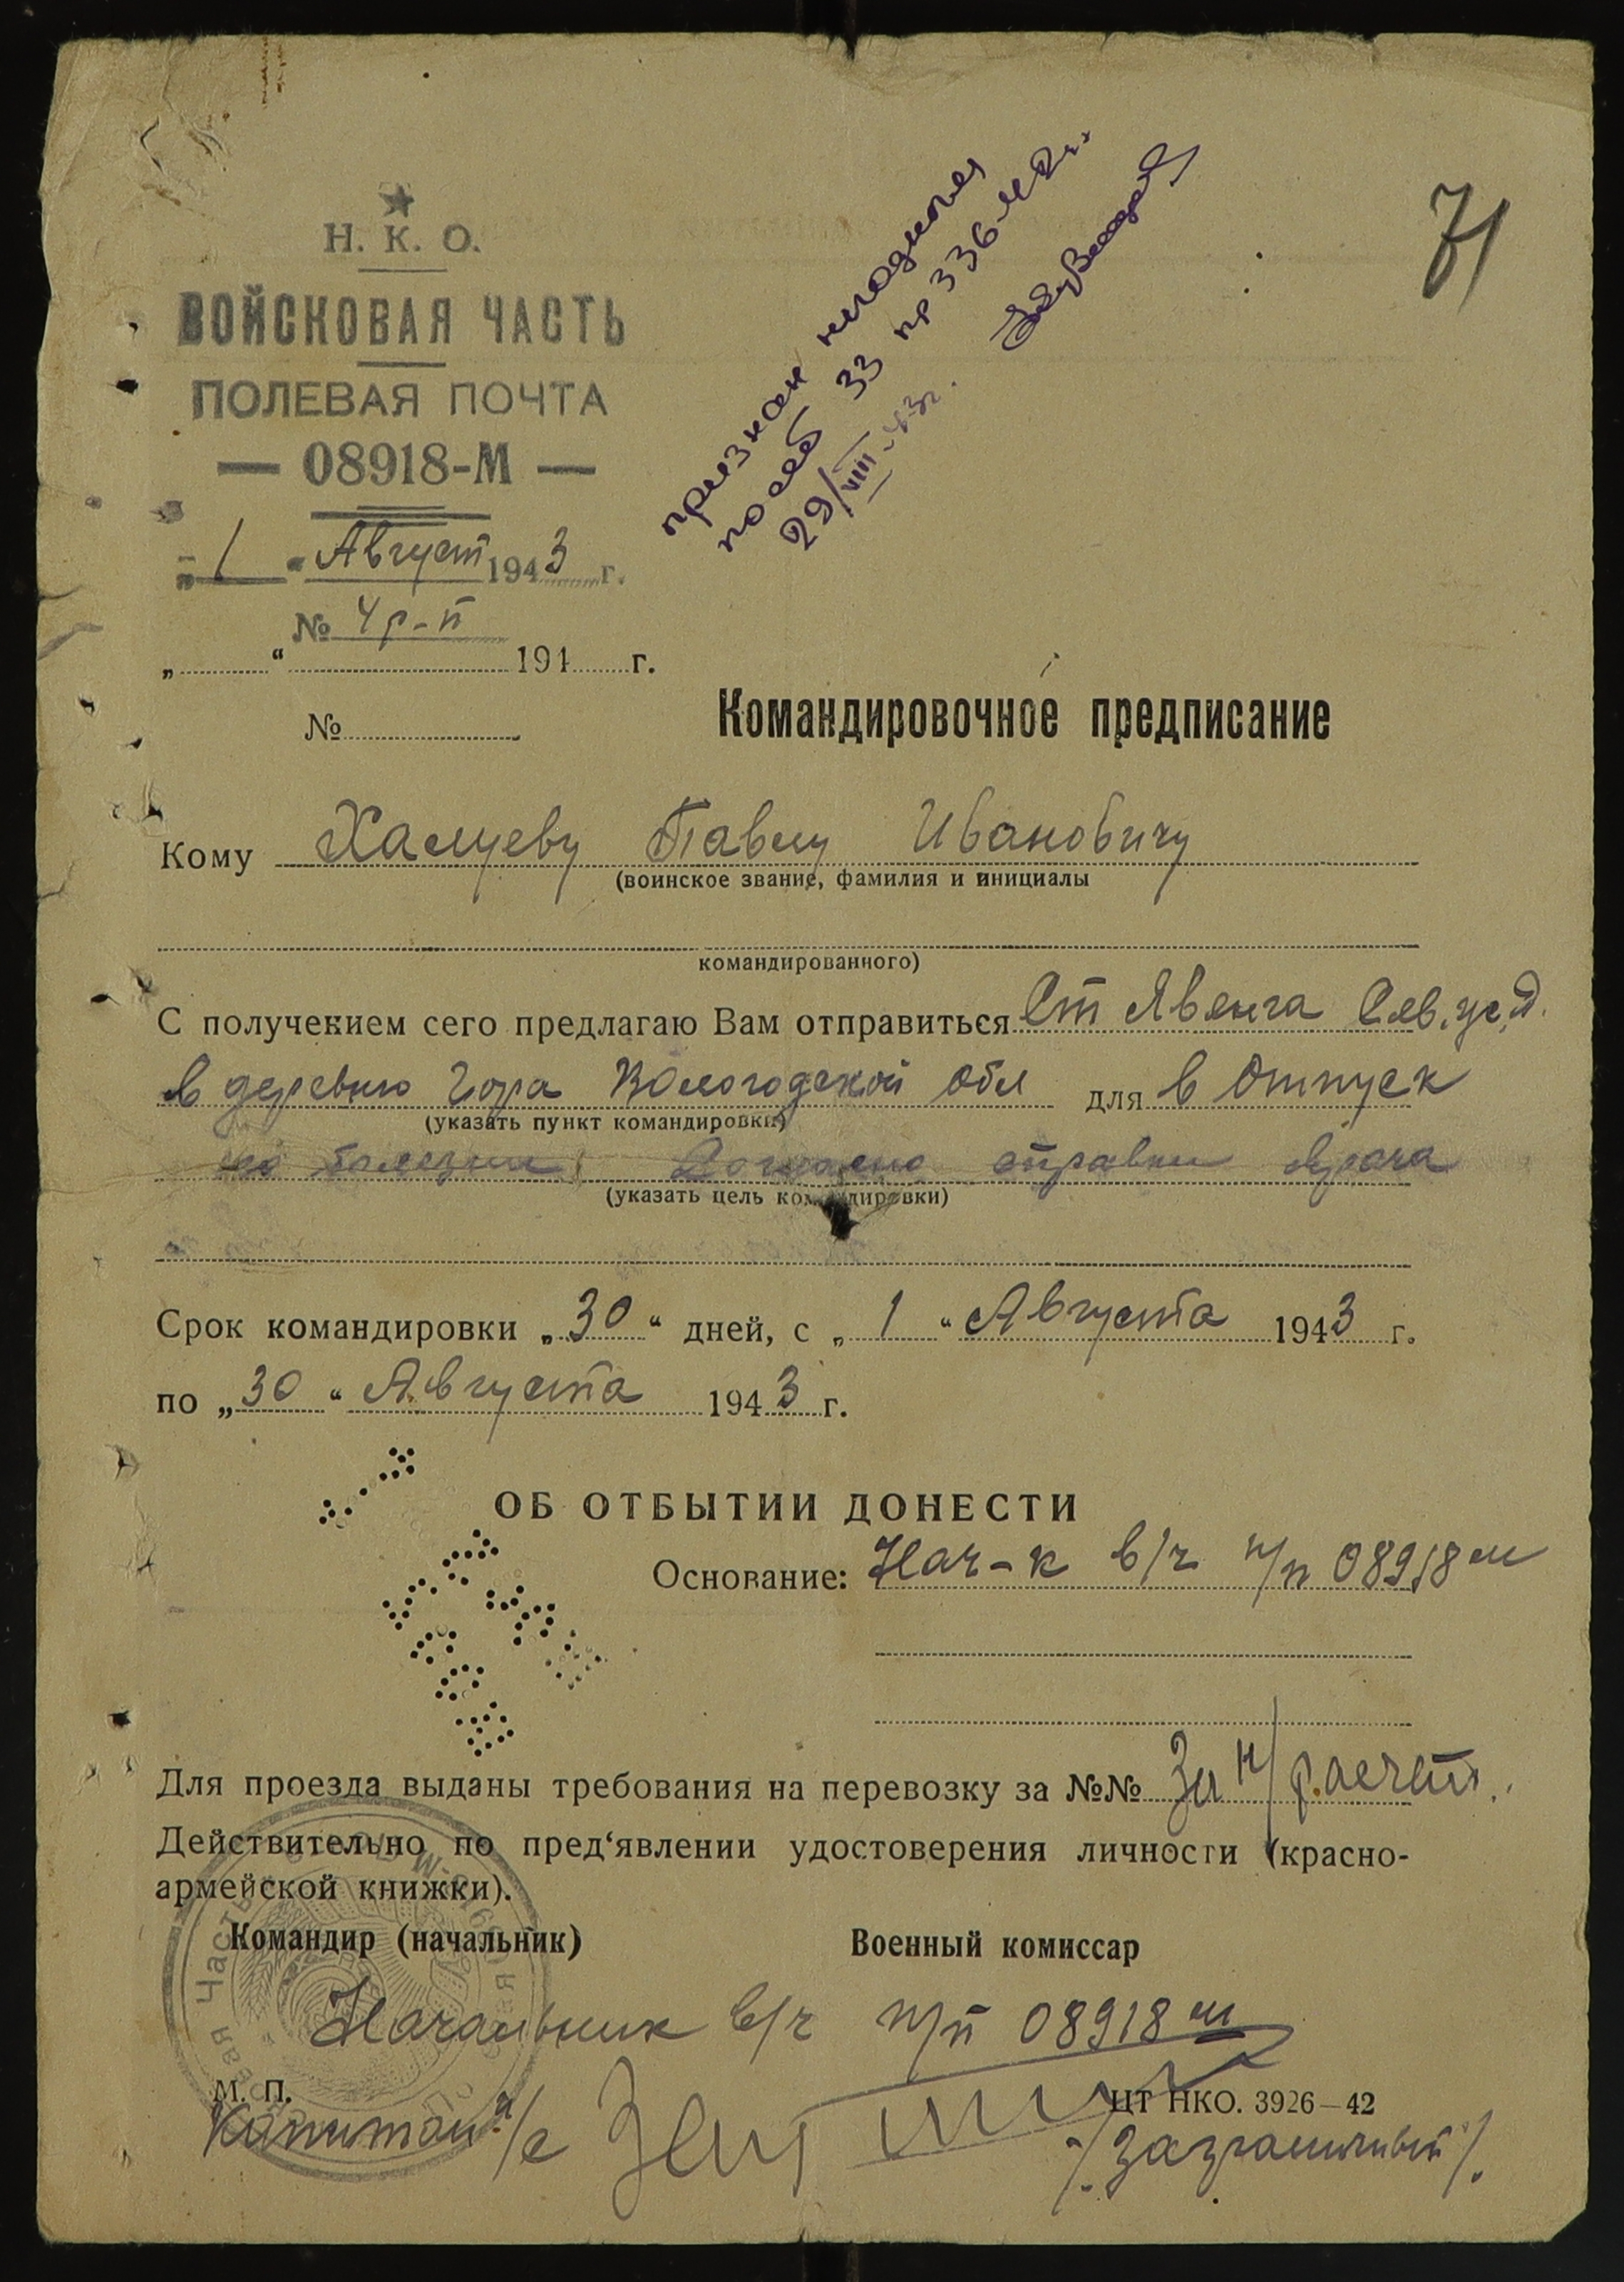 71
признан негодным
по ст 33 пр 336-42г.
29/VIII-43г.
Н. К. О.
ВОЙСКОВАЯ ЧАСТЬ
ПОЛЕВАЯ ПОЧТА
— 08918-М —
„ 1 “ Август 1943 г.
№ 4р-п
„ “ 194 г.
№
Командировочное предписание
Кому Халуеву Павлу Ивановичу
(воинское звание, фамилия и инициалы
командированного)
С получением сего предлагаю Вам отправиться Ст Явенга Сев. ж.д.
в деревню Гора Вологодской обл для в Отпуск
(указать пункт командировки)
по болезни. справки врача
(указать цель командировки)
Срок командировки „ 30 “ дней, с „ 1 “ Августа 1943 г.
по „ 30 “ Августа 1943 г.
ОБ ОТБЫТИИ ДОНЕСТИ
Основание: Нач-к в/ч п/п 08918 м
Для проезда выданы требования на перевозку за №№ За н/расчет.
Действительно по пред‘явлении удостоверения личности (красно-
армейской книжки).
Командир (начальник) Военный комиссар
Начальник в/ч п/п 08918 м
М. П.
ЦТ НКО. 3926—42
Капитан а/с /Заграничный/